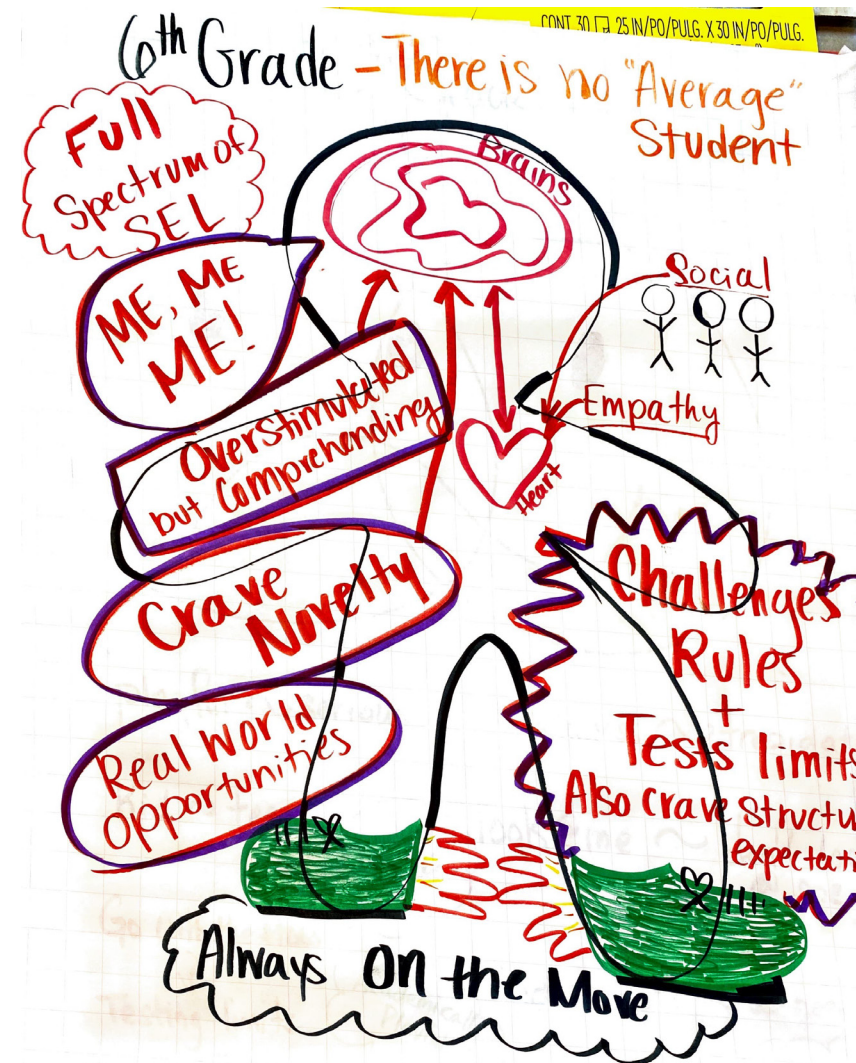 CONT. 30 25 IN/PO/PULG. X 30 IN/PO/PULG.
6th Grade - There is no "Average"
Student
Full
Spectrum of
SEL
Brains
ME, ME
ME!
Social
Overstimulated
but Comprehending
Empathy
Heart
Crave
Novelty
Challenges
Rules
+
Tests limits
Also crave structu
expectati
Real World
Opportunities
Always on the Move